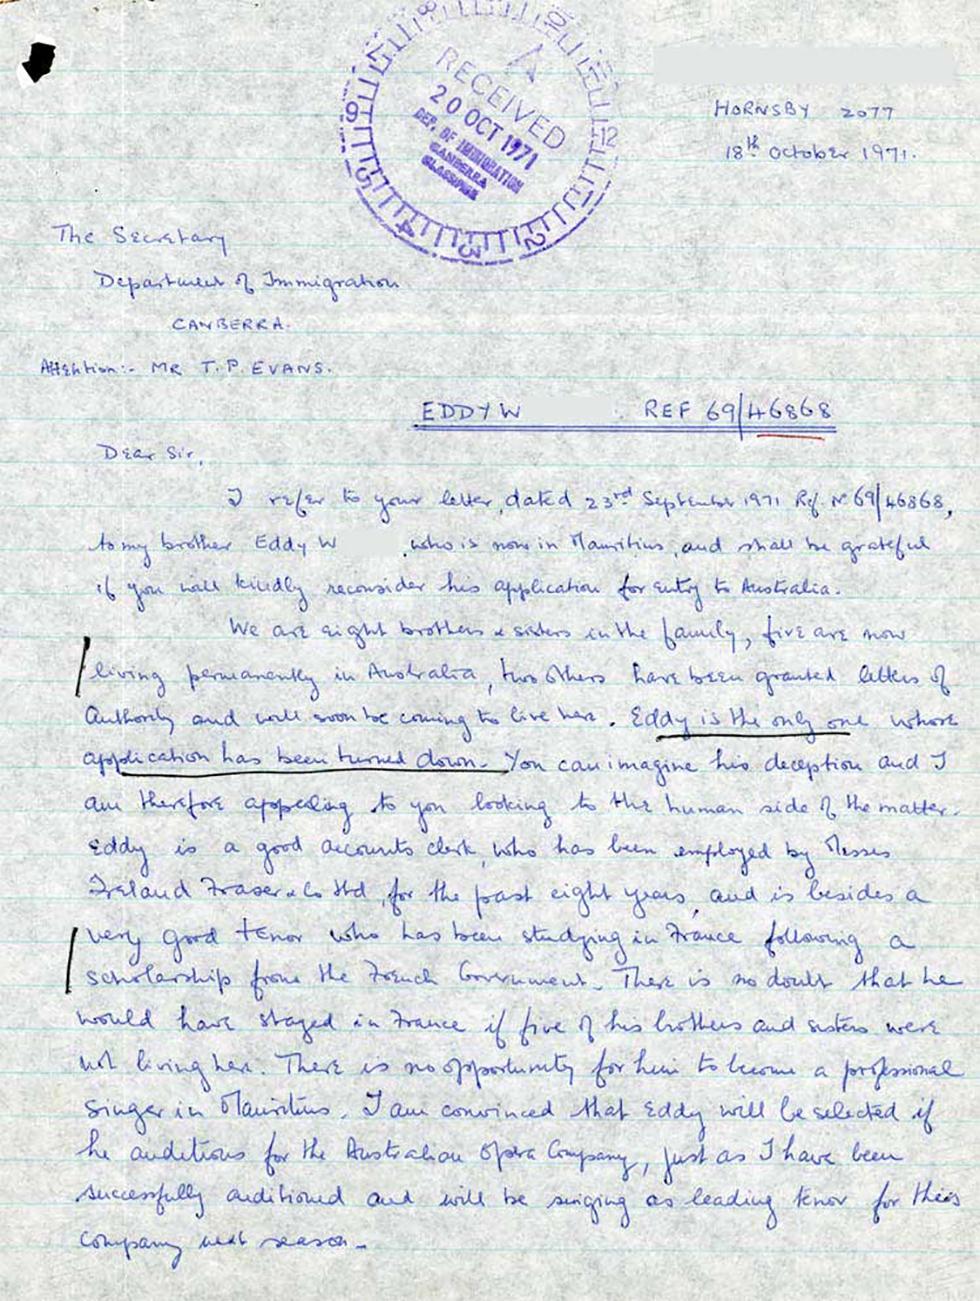 RECEIVED
20 OCT 1971
DEP. OF IMMIGRATION
CANBERRA
12
2
3
4
5
9
HORNSBY 2077
18th October 1971.
The Secretary
Department of Immigration
CANBERRA.
Attention:- MR T.P. EVANS.
EDDY W REF 69/46868
Dear Sir,
I refer to your letter, dated 23rd September 1971 Ref. No 69/46868,
to my brother Eddy W , who is now in Mauritius, and shall be grateful
if you will kindly reconsider his application for entry to Australia.
We are eight brothers & sisters in the family, five are now
living permanently in Australia, two others have been granted letters of
Authority and will soon be coming to live here. Eddy is the only one whose
application has been turned down. You can imagine his deception and I
am therefore appealing to you looking to the human side of the matter.
Eddy is a good accounts clerk, who has been employed by Messes
Ireland Fraser & Co Ltd, for the past eight years, and is besides a
very good tenor who has been studying in France following a
scholarship from the French Government. There is no doubt that he
would have stayed in France if five of his brothers and sisters were
not living here. There is no opportunity for him to become a professional
singer in Mauritius. I am convinced that Eddy will be selected if
he auditions for the Australian Opera Company, just as I have been
successfully auditioned and will be singing as leading tenor for this
Company next season.